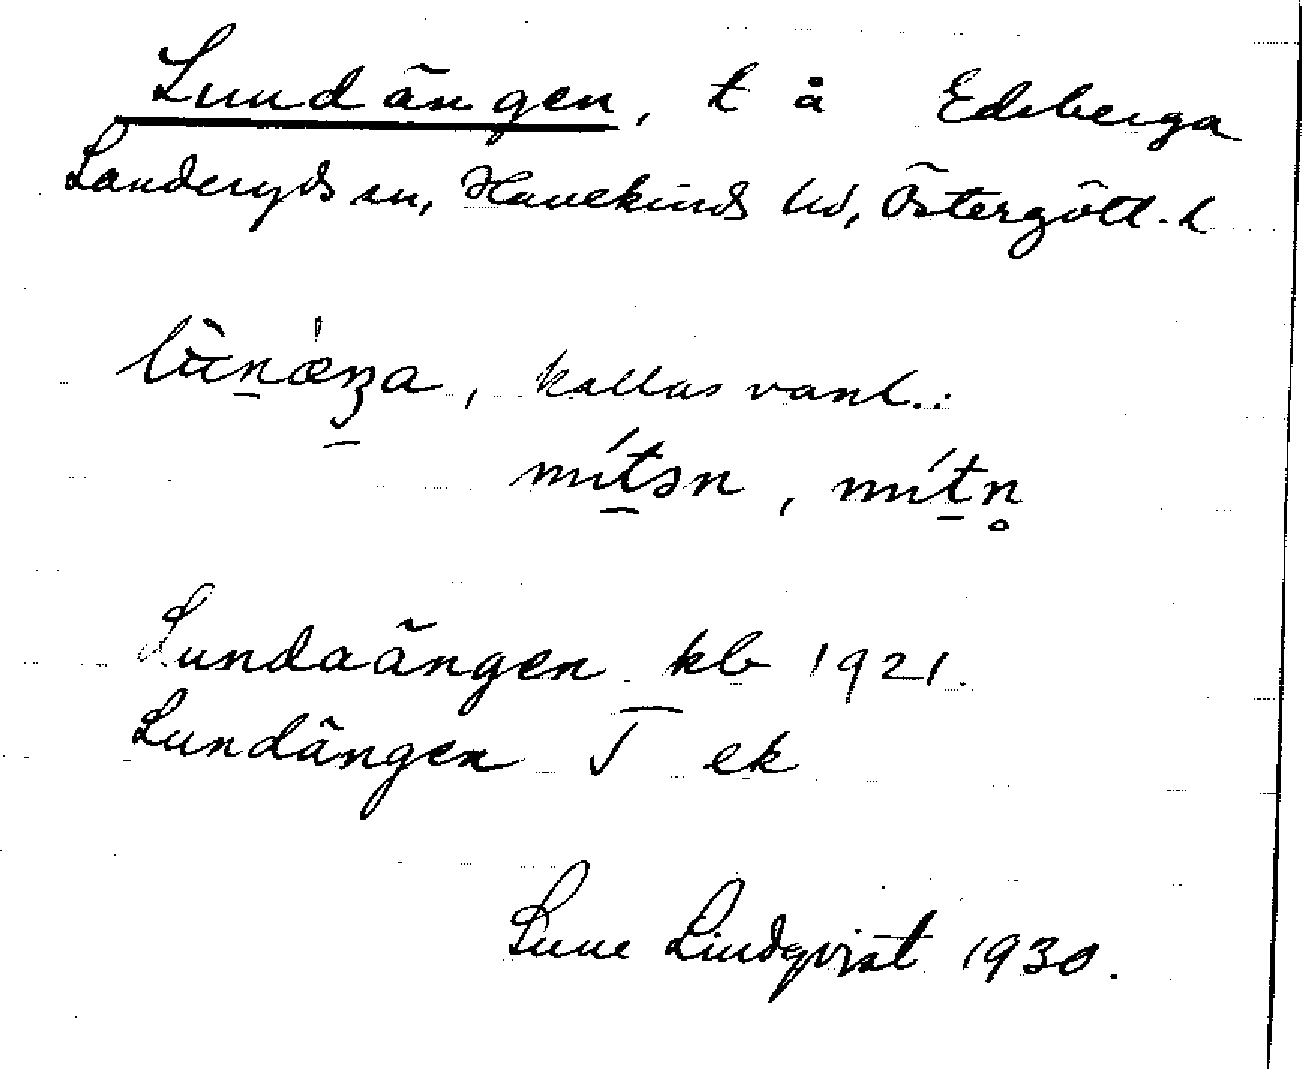 Lundängen, t å Edeberga
Landeryds sn, Hanekinds hd, Östergötl. l
lùnǽŋa, kallas vanl.:
mítən, mítn̥
Lundaängen kb 1921.
Lundängen J ek
Sune Lindqvist 1930.